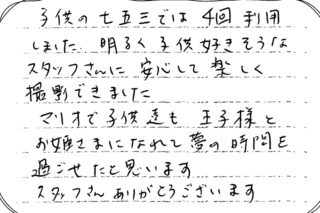 子供の七五三では 4回 利用
しました 明るく子供好きそうな
スタッフさんに 安心して 楽しく
撮影できました
マリオで子供達も 王子様と
お姫さまになれて夢の時間を
過ごせたと思います
スタッフさん ありがとうございます